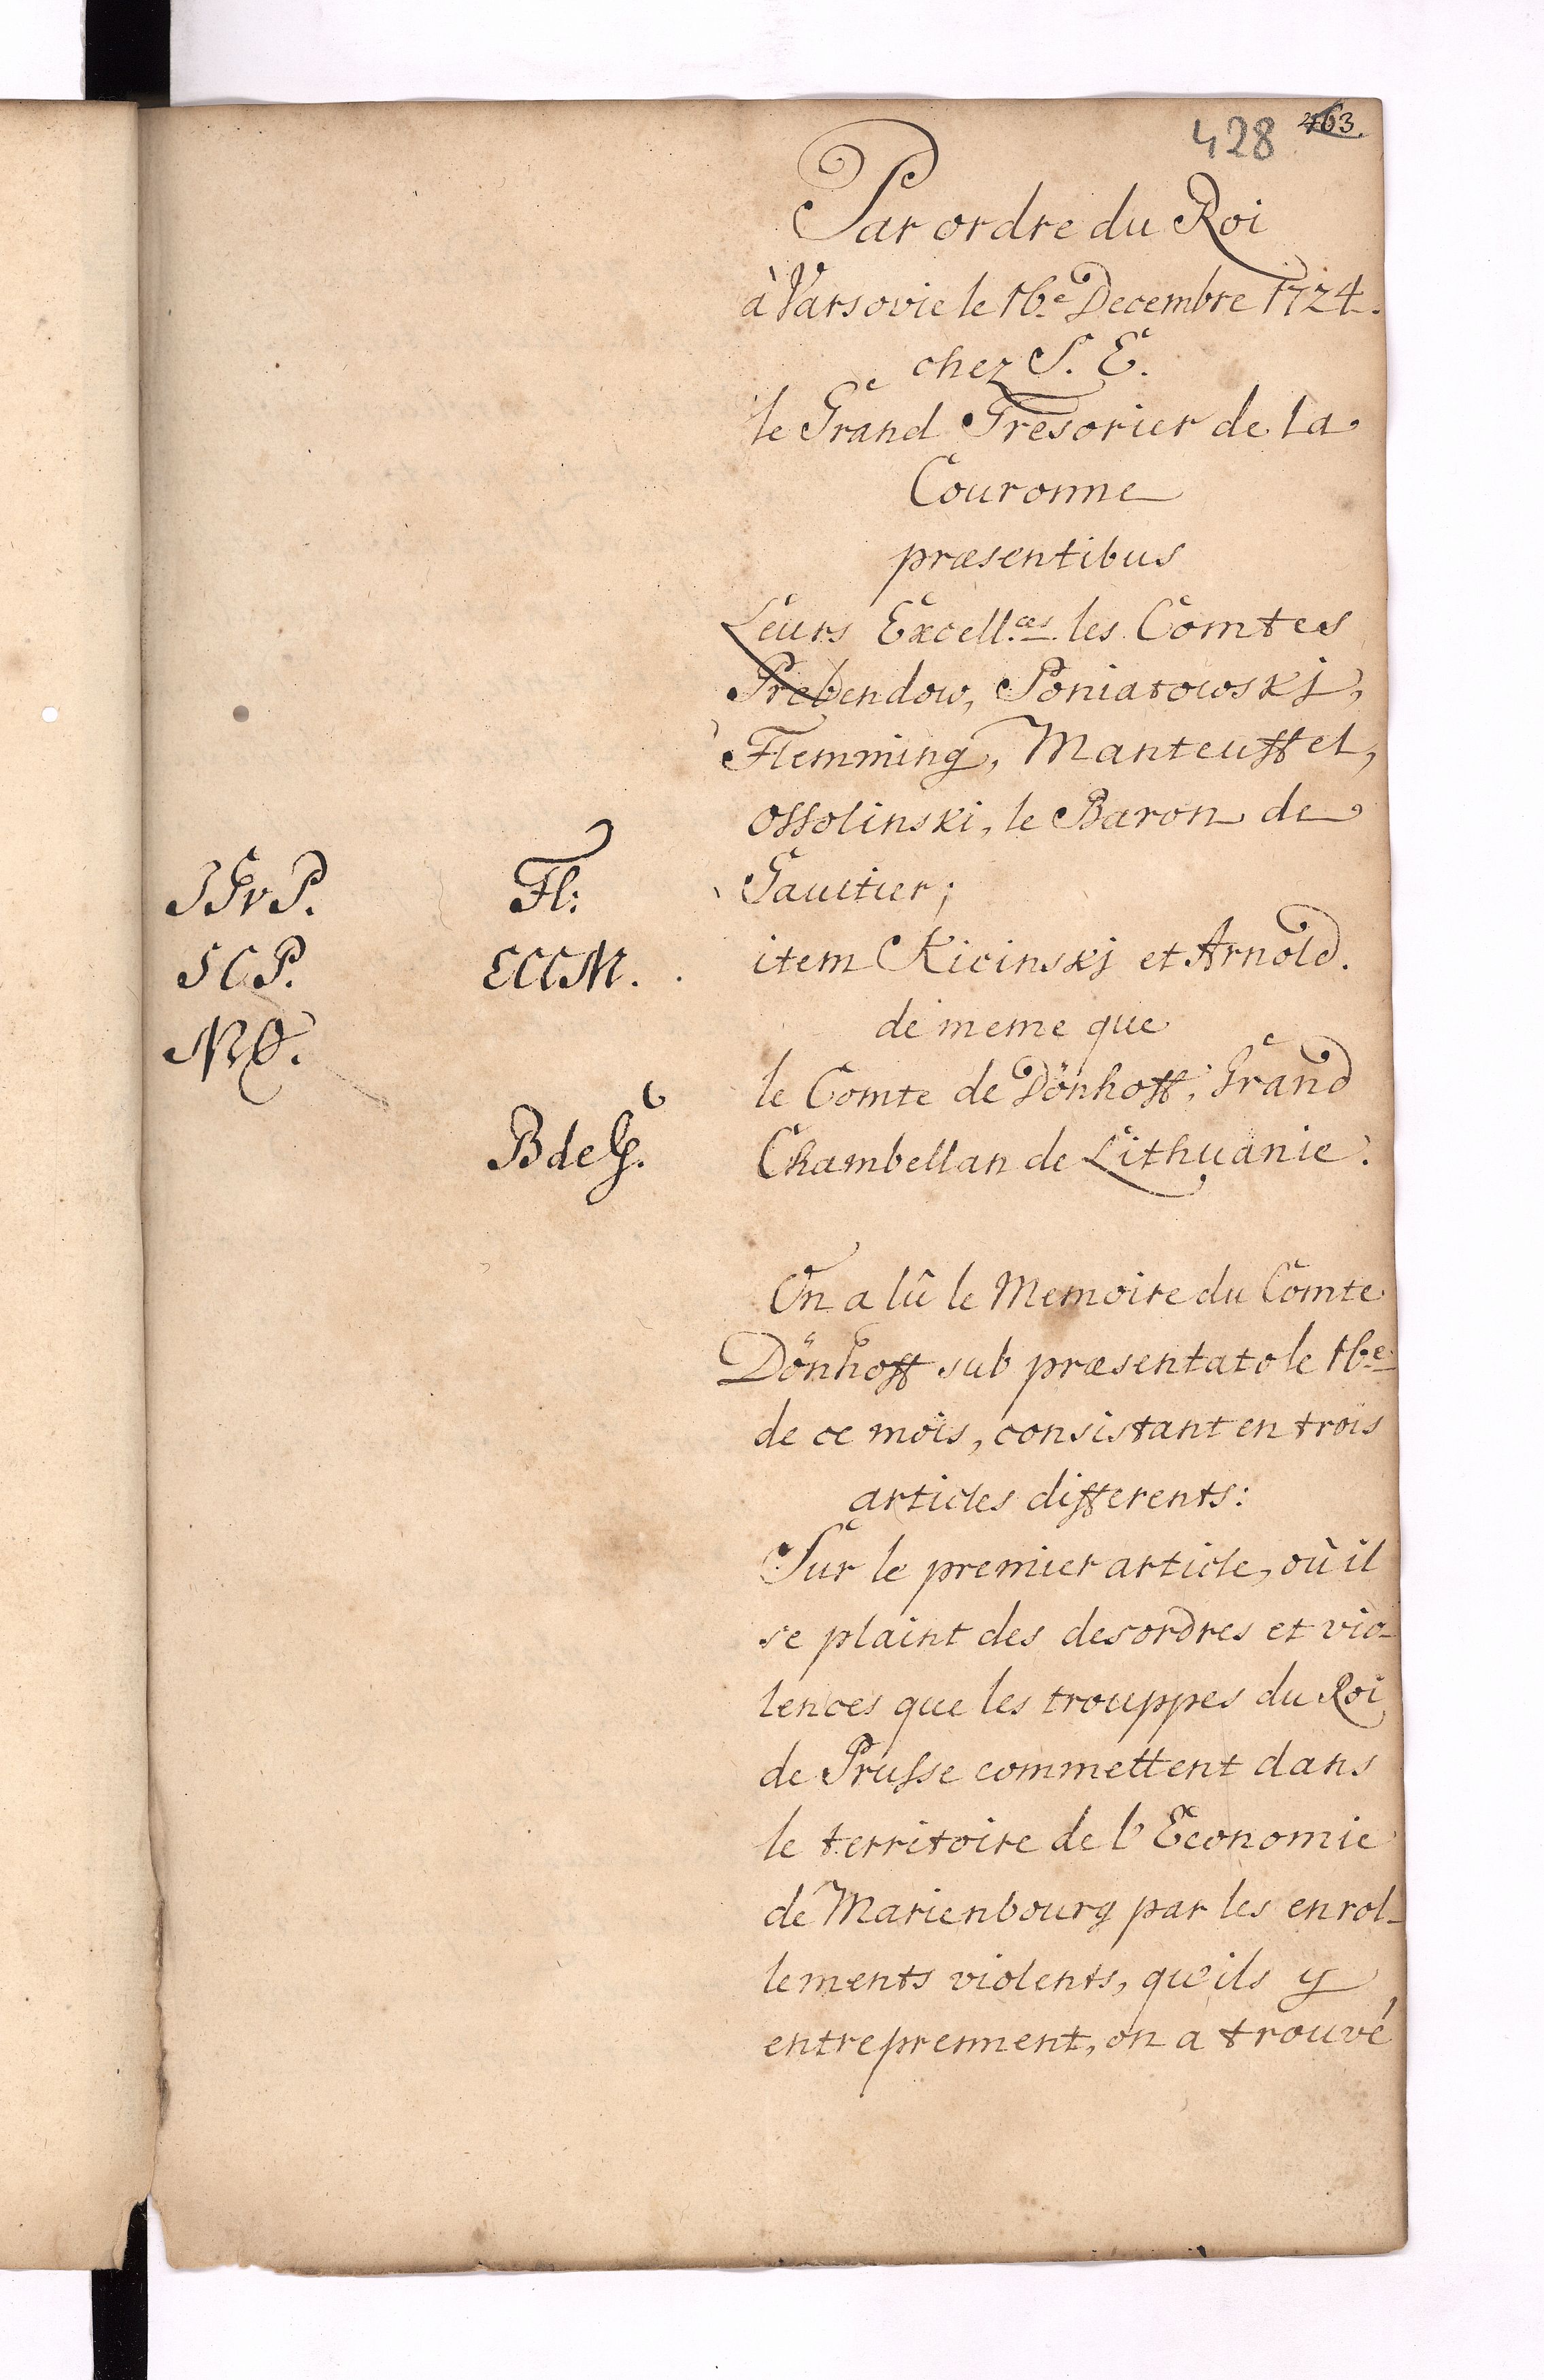 428 463.
Par ordre du Roi
à Varsovie le 16.e Decembre 1724.
chez S. E.
le Grand Tresorier de la
Couronne
præsentibus
Leurs Excell.ces les Comtes
Prebendow, Poniatowskj,
Flemming, Manteuffel,
Ossolinski, le Baron de
Gaultier;
item Kicinskj et Arnold.
de meme que
le Comte de Dönhoff, Grand
Chambellan de Lithuanie.
JGvP. Fl:
SCP. ECCM.
BdeG.
On a lû le Memoire du Comte
Dönhoff sub præsentato le 16.e
de ce mois, consistant en trois
articles differents:
Sur le premier article, où il
se plaint des desordres et vio-
lences que les trouppes du Roi
de Prusse commettent dans
le territoire de l'Economie
de Marienbourg par les enrol-
lements violents, qu'ils y
entreprennent, on a trouvé